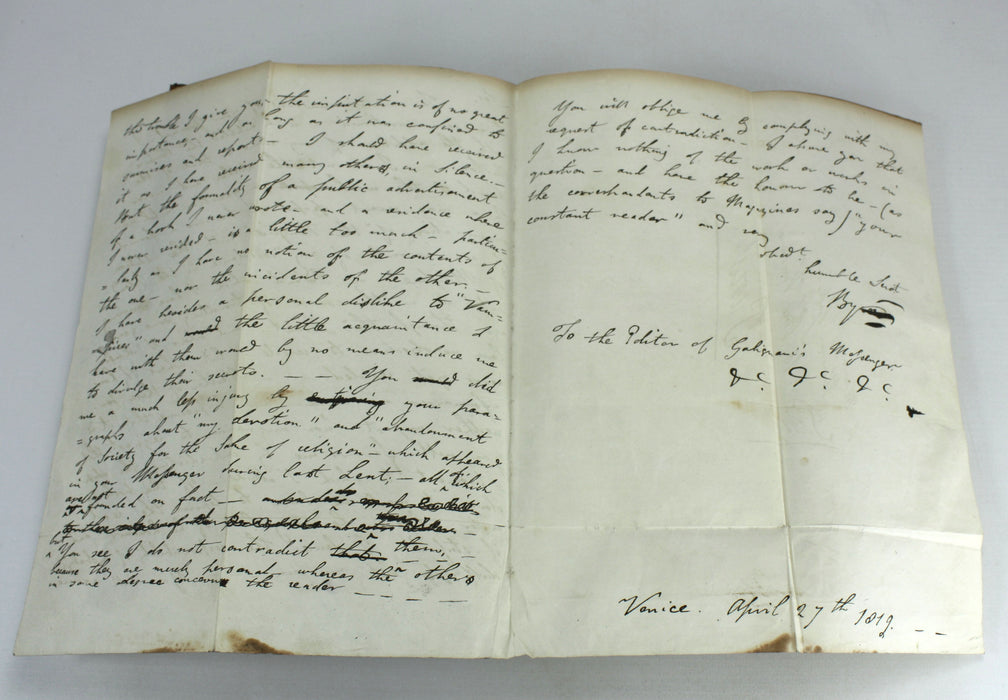 this trouble I give you – the imputation is of no great
importance – and as long as it was confined to
surmises and reports – I should have received
it as I have received many others, in Silence. –
But the formality of a public advertisement
of a book I never wrote – and a residence where
I never resided – is a little too much – particu-
=larly as I have no notion of the contents of
the one – nor the incidents of the other. –
I have besides a personal dislike to "Vam-
=pires" and the little acquaintance I
have with them would by no means induce me
to divulge their secrets. – – – You did
me a much less injury by your para-
=graphs about "my devotion" and "abandonment
of Society for the Sake of religion" – which appeared
in your Messenger during last Lent; – all of which
are not founded on fact –
but
You see I do not contradict them, –
because they are merely personal – whereas the others
in some degree concern the reader – – – –
You will oblige me by complying with my
request of contradiction – I assure you that
I know nothing of the work or works in
question – and have the honour to be – (as
the correspondents to Magazines say) "your
constant reader" and very
obedt.
humble Servt
Byron
To the Editor of Galignani's Messenger
&c. &c. &c.
Venice. April 27th 1819. – –